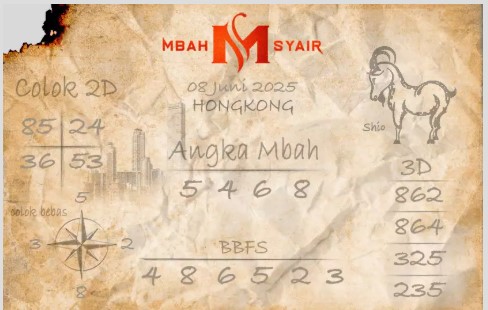 MBAH M SYAIR
08 Juni 2025
HONGKONG
Colok 2D
85 24
36 53
Angka Mbah
5 4 6 8
Shio
3D
862
864
325
235
colok bebas
5
3 2
8
BBFS
4 8 6 5 2 3